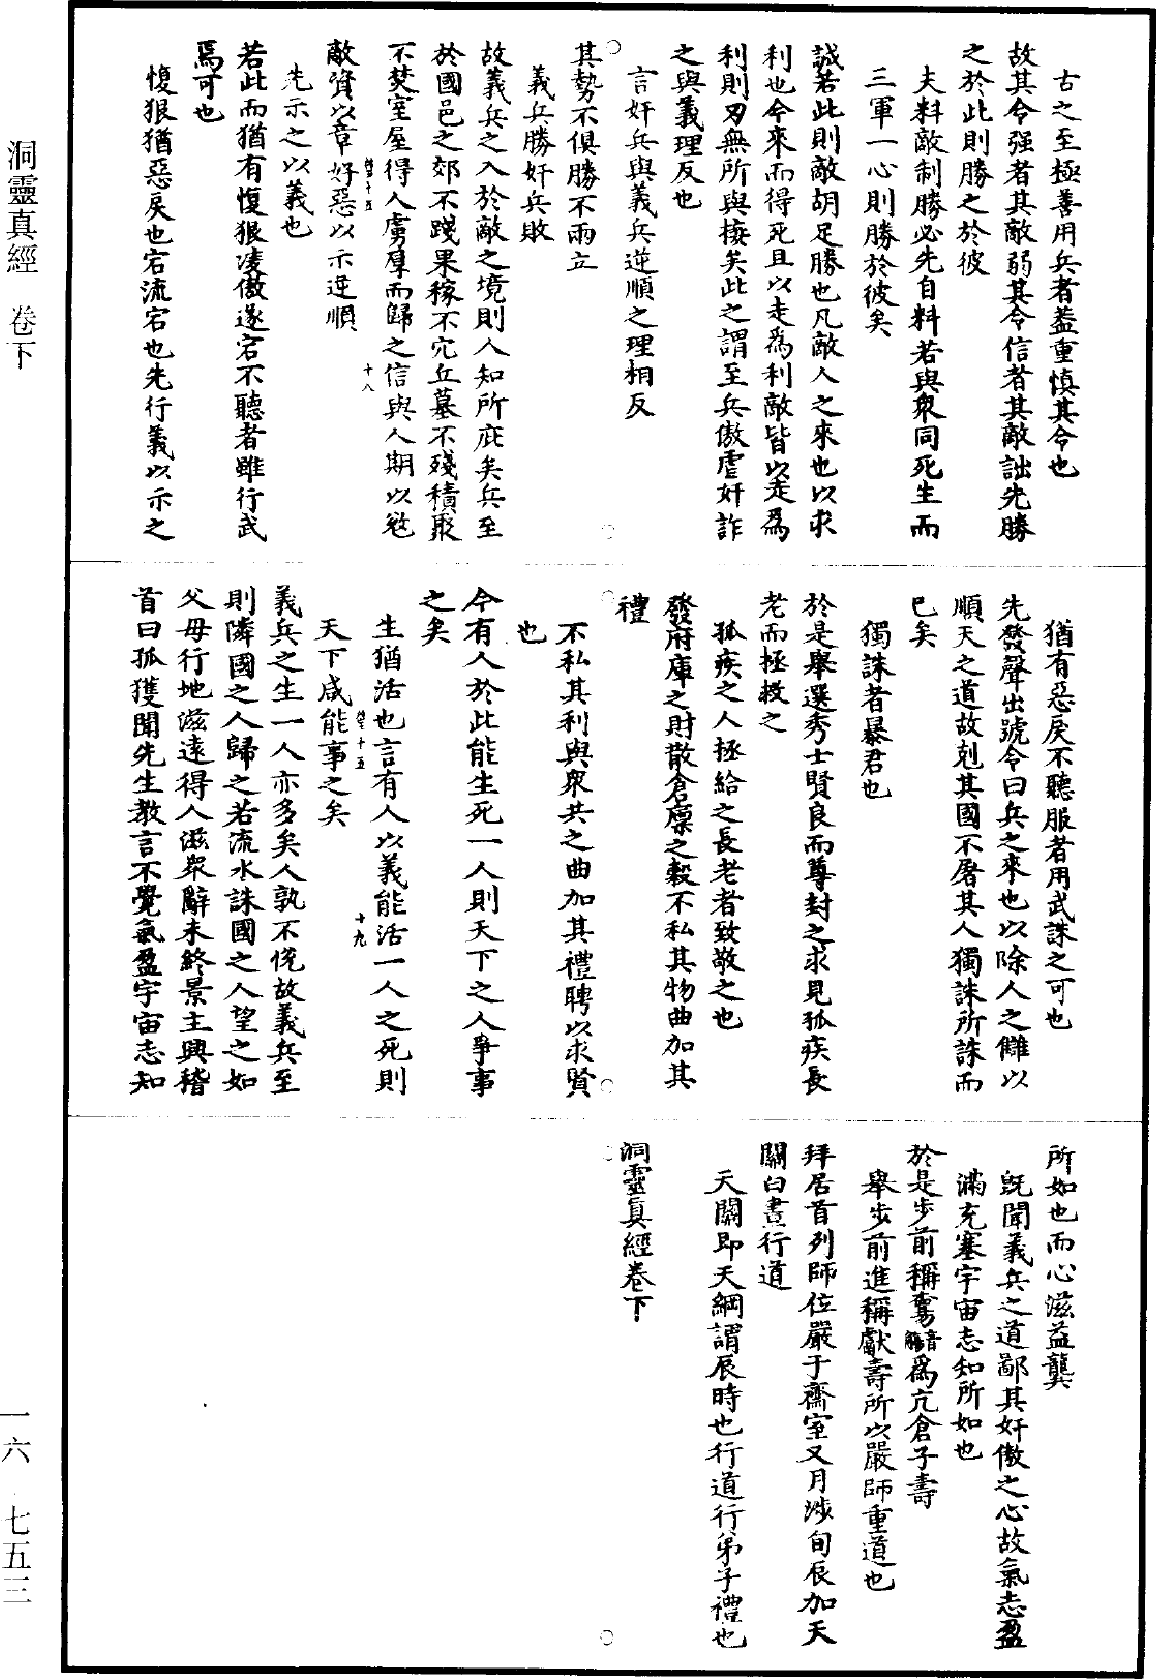 古之至極善用兵者蓋重慎其令也
故其令强者其敵弱其令信者其敵詘先勝
之於此則勝之於彼
夫料敵制勝必先自料若與衆同死生而
三軍一心則勝於彼矣
誠若此則敵胡足勝也凡敵人之來也以求
利也今來而得死且以走爲利敵皆以走爲
利則刃無所與接矣此之謂至兵傲虐奸詐
之與義理反也
言奸兵與義兵逆順之理相反
其勢不俱勝不兩立
義兵勝奸兵敗
故義兵之入於敵之境則人知所庇矣兵至
於國邑之郊不踐果稼不穴丘墓不殘積聚
不焚室屋得人虜厚而歸之信與人期以敓
十八
敵資以章好惡以示逆順
先示之以義也
若此而猶有愎狠凌傲遂宕不聽者雖行武
焉可也
愎狠猶惡戾也宕流宕也先行義以示之
猶有惡戾不聽服者用武誅之可也
先發聲出號令曰兵之來也以除人之讎以
順天之道故剋其國不屠其人獨誅所誅而
已矣
獨誅者暴君也
於是舉選秀士賢良而尊封之求見孤疾長
老而拯救之
孤疾之人拯給之長老者致敬之也
發府庫之財散倉廩之穀不私其物曲加其
禮
不私其利與衆共之曲加其禮聘以求賢
也
今有人於此能生死一人則天下之人爭事
之矣
生猶活也言有人以義能活一人之死則
十九
天下咸能事之矣
義兵之生一人亦多矣人孰不悅故義兵至
則隣國之人歸之若流水誅國之人望之如
父母行地滋遠得人滋衆辭未終景主興稽
首曰孤獲聞先生教言不覺氣盈宇宙志知
所如也而心滋益龔
旣聞義兵之道鄙其奸傲之心故氣志盈
滿充塞宇宙志知所如也
於是步前稱觴音觴爲亢倉子壽
舉步前進稱獻壽所以嚴師重道也
拜居首列師位嚴于齋室又月涉旬辰加天
關白晝行道
天關即天綱謂辰時也行道行弟子禮也
洞靈真經卷下
洞靈真經 卷下
一六 七五三